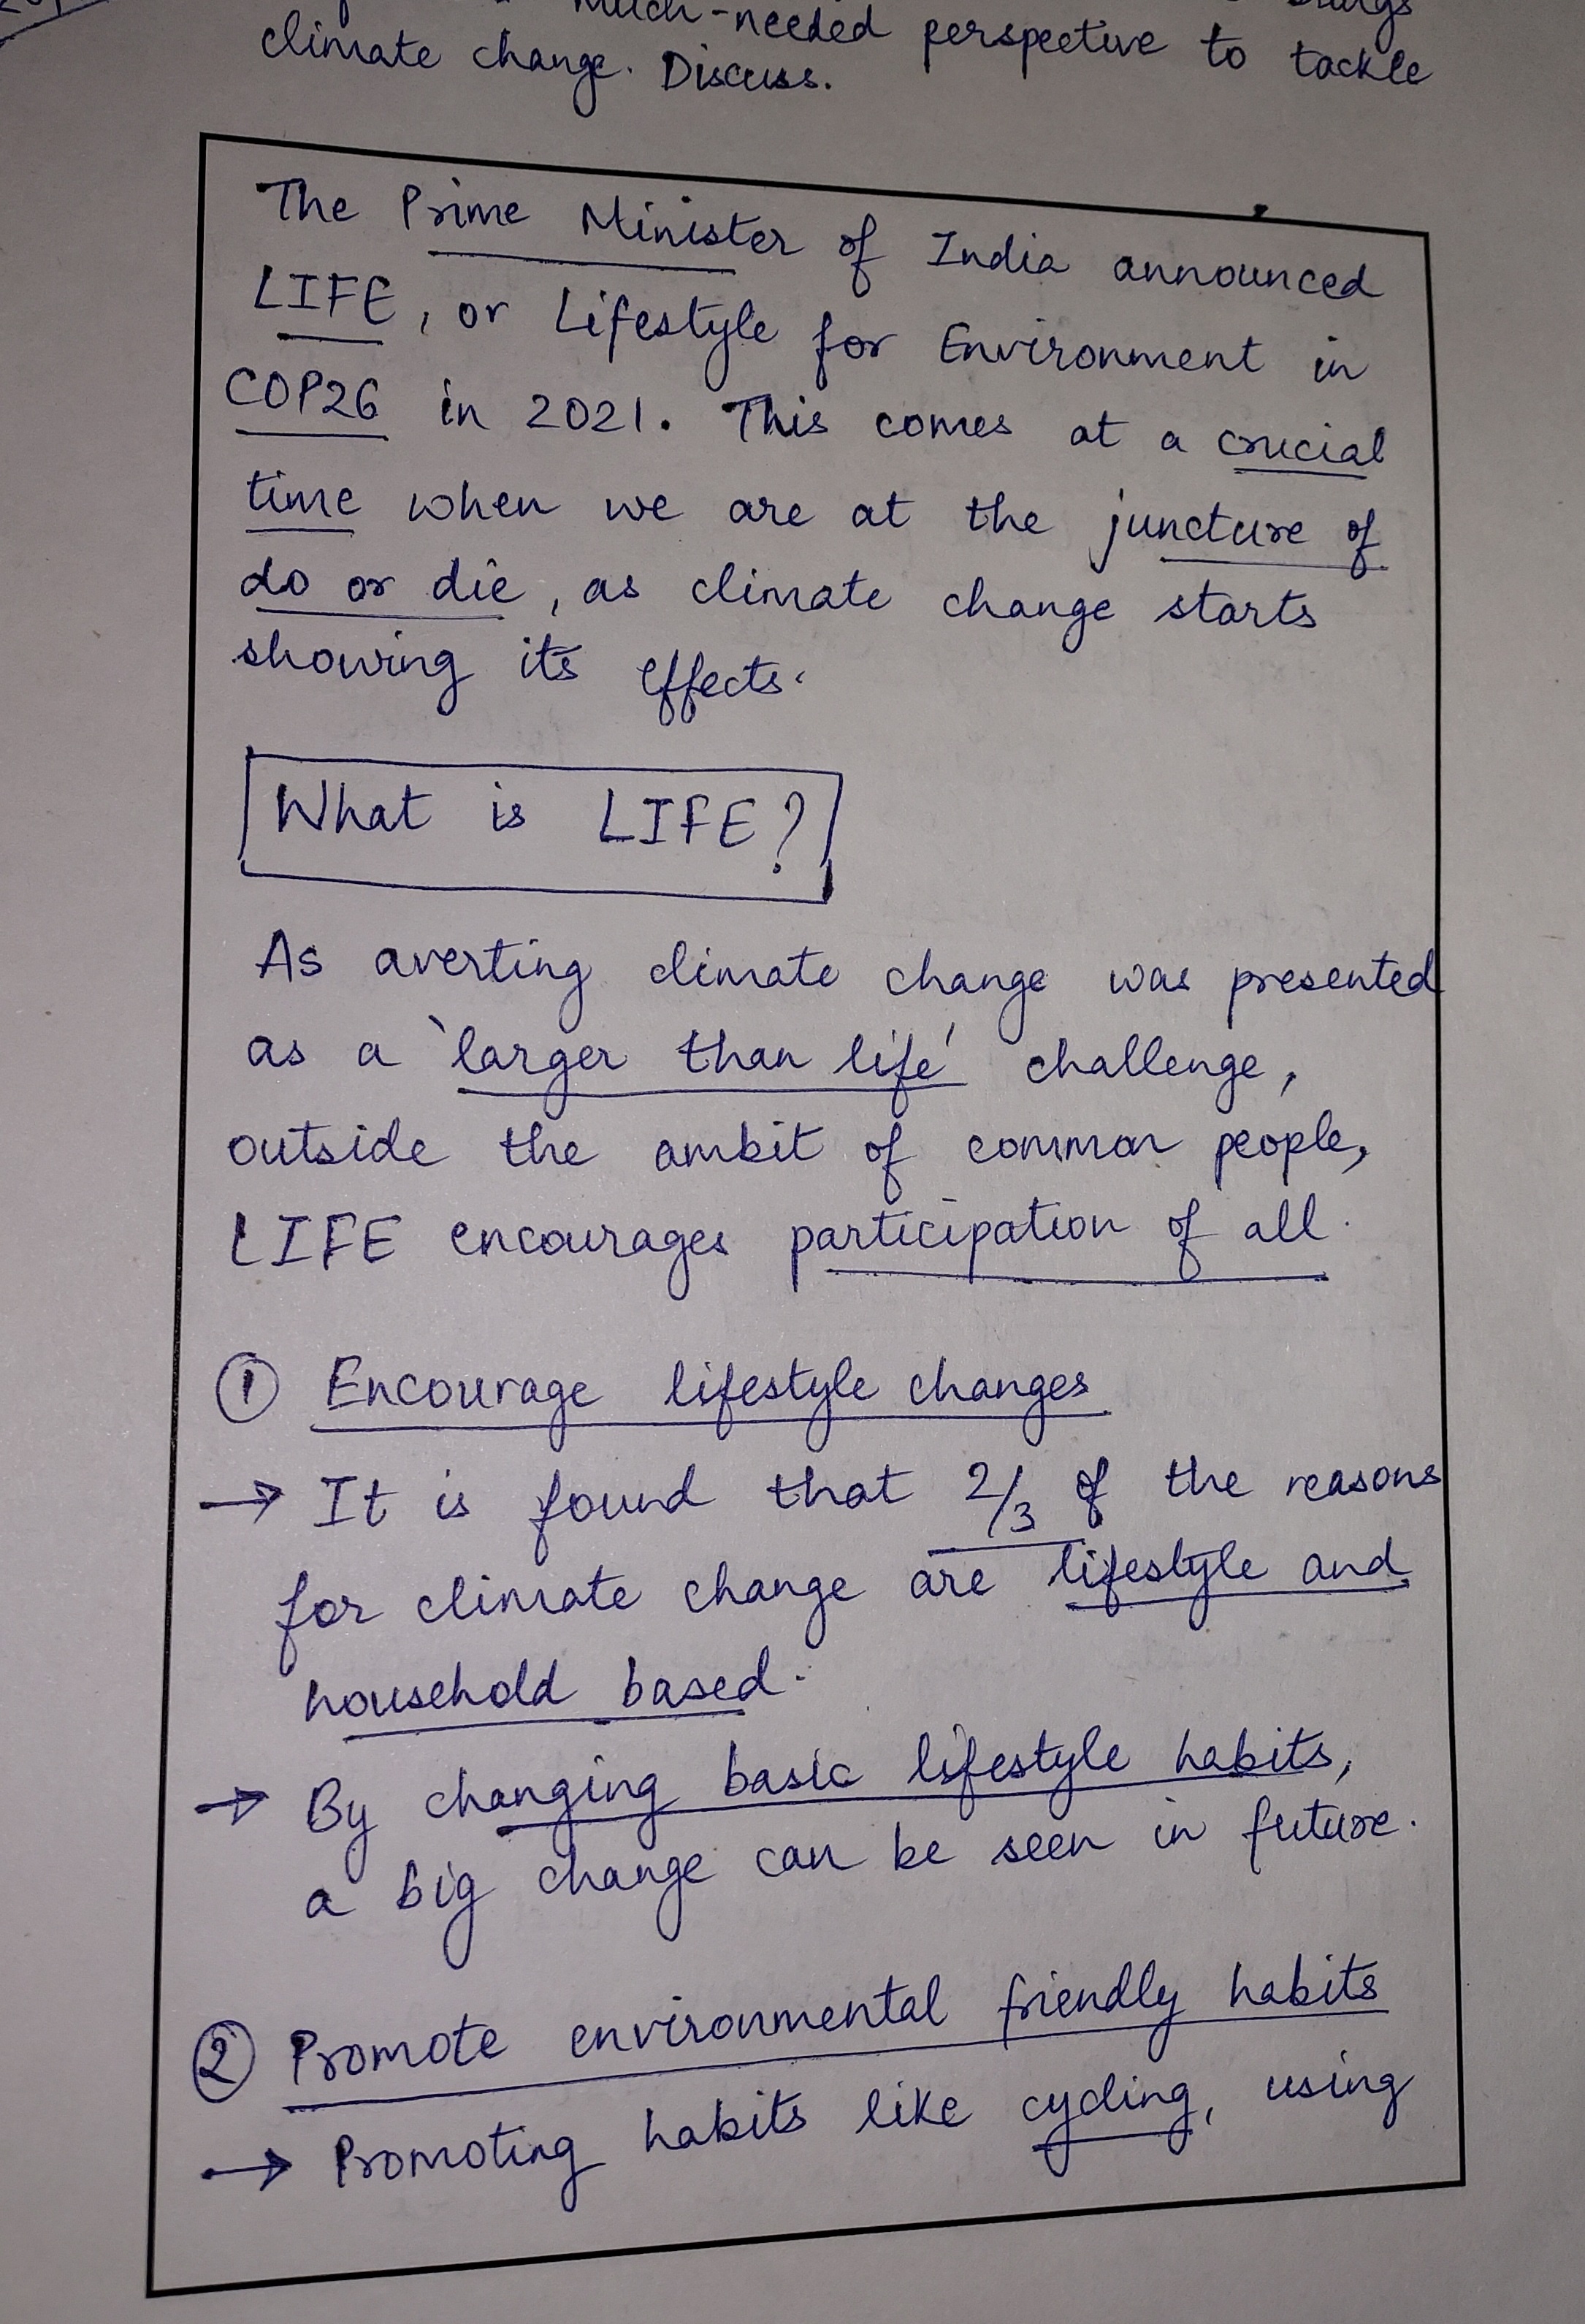 much-needed perspective to tackle
climate change. Discuss.
The Prime Minister of India announced
LIFE, or Lifestyle for Environment in
COP26 in 2021. This comes at a crucial
time when we are at the juncture of
do or die, as climate change starts
showing its effects.
What is LIFE?
As averting climate change was presented
as a 'larger than life' challenge,
outside the ambit of common people,
LIFE encourages participation of all.
① Encourage lifestyle changes
→ It is found that 2/3 of the reasons
for climate change are lifestyle and
household based.
→ By changing basic lifestyle habits,
a big change can be seen in future.
② Promote environmental friendly habits
→ Promoting habits like cycling, using